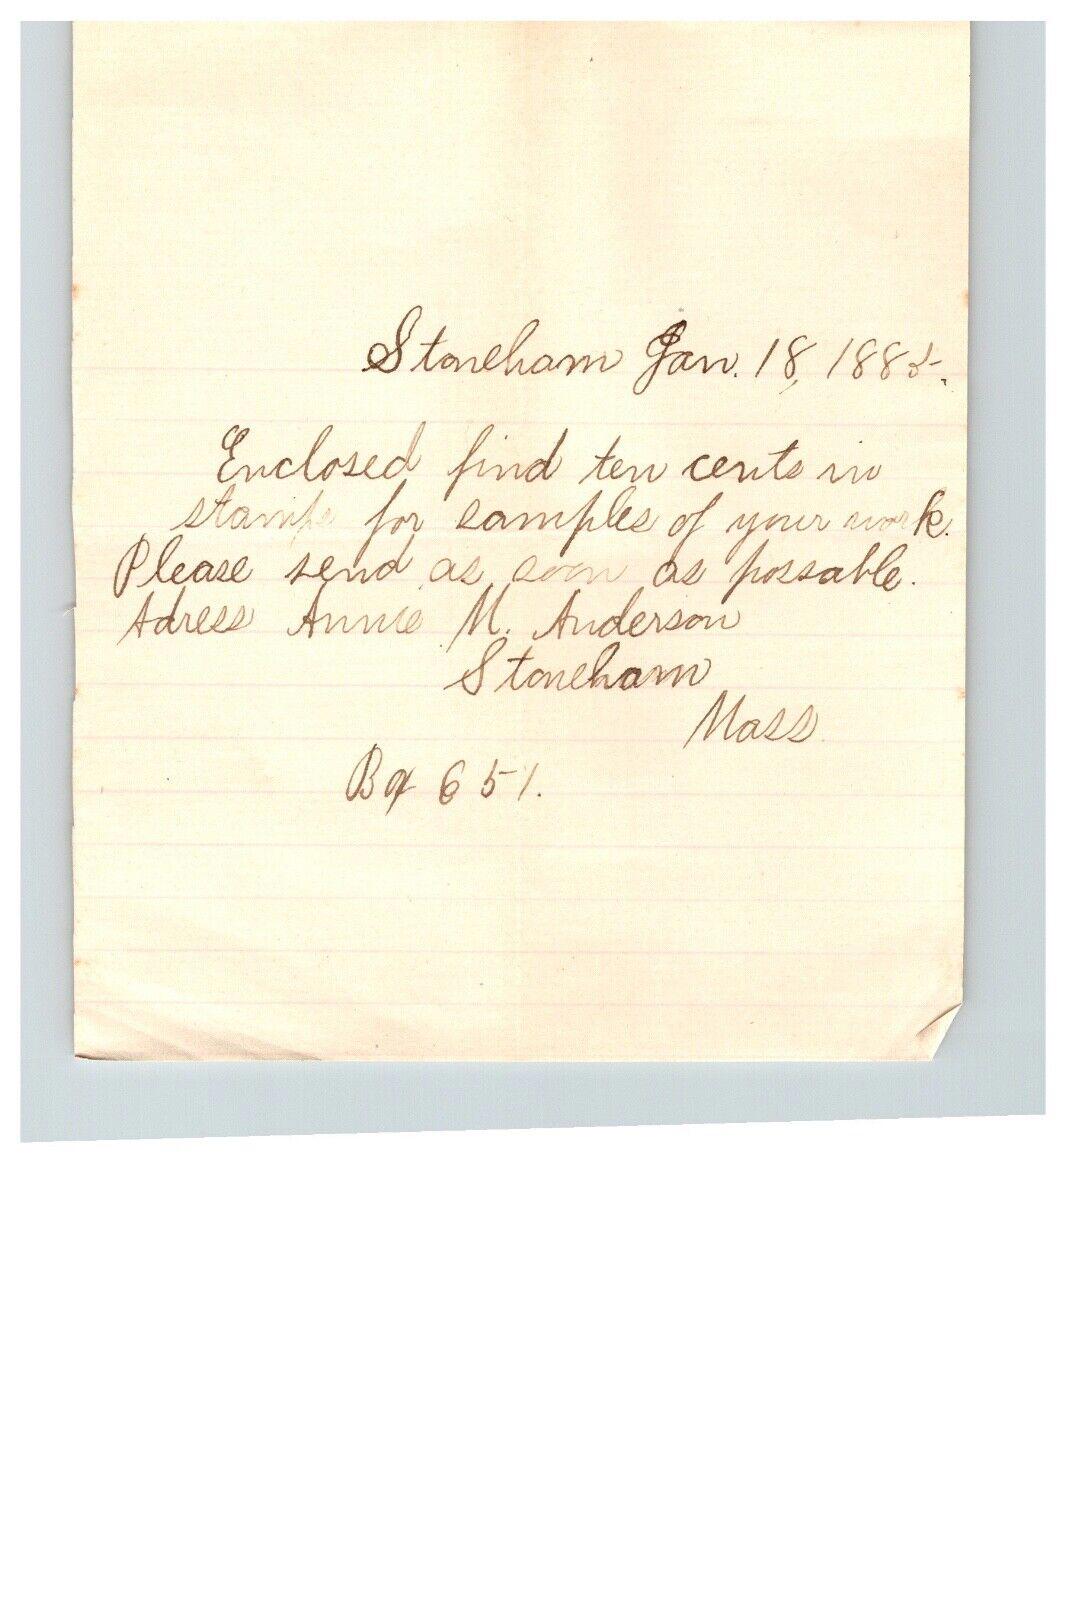 Stoneham Jan. 18, 1885.
Enclosed find ten cents in
stamps for samples of your work.
Please send as soon as possable.
Adress Annie M. Anderson
Stoneham
Mass
Box 651.